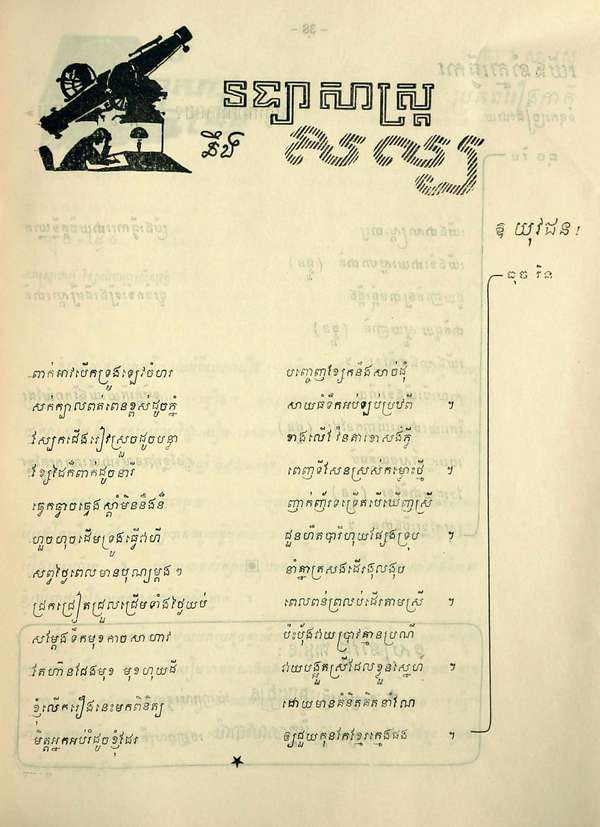 ទទ្យាសាស្ត្រ
នឹង
សិល្ប
ឱ យុវជន!
ធុច រិន
ពាក់អាវបើកទ្រូងឡេវចំហរ បញ្ចេញខ្សែកនឹងសាច់ដុំ
សក់ក្បាលពត់ពេនខ្ពស់ដូចភ្នំ សាយផំទឹកអប់ឡប់ប្រឃំពី ។
ស្បែកជើងវៀវស្រួចដូចបន្លា ខាងលើ
ខ្សែដៃក៏ពាក់ដូចនារី ពេញទីសែនស្រស់កម្លោះថ្មី ។
ឆ្វេកឆ្វាចឆ្វេងស្ដាំមិននឹងន៏ ញាក់ញ័រទទ្រើតបើឃើញស្រី
ហួចហុចដើមទ្រូងធ្វើព្រហើ ជួនហឹតបារីហុយផ្សែងទ្រុប ។
សព្វថ្ងៃពេលមានបុណ្យម្ដងៗ នាំគ្នាត្រសងដើរងុលងុប
ជ្រកជ្រៀតជ្រួលជ្រើមទាំងថ្ងៃយប់ ពេលពន់ព្រលប់ដើរតាមស្រី ។
សម្ដែងទឹកមុខកាចសាហាវ ប៉ះប៉ុងវាយប្រាវគ្មានប្រណី
តែហ៊ានដែងមុខ មុខហុយដី វាយបង្អួតស្រីដែលខ្លួនស្នេហ ។
ខ្ញុំលើករឿងនេះមកពិនិត្យ ដោយមានគំនិតគិតនាំណែ
មិត្តអ្នកអប់រំដូចខ្ញុំដែរ ឲ្យជួយកូនកែខ្មែរក្មេងផង ។